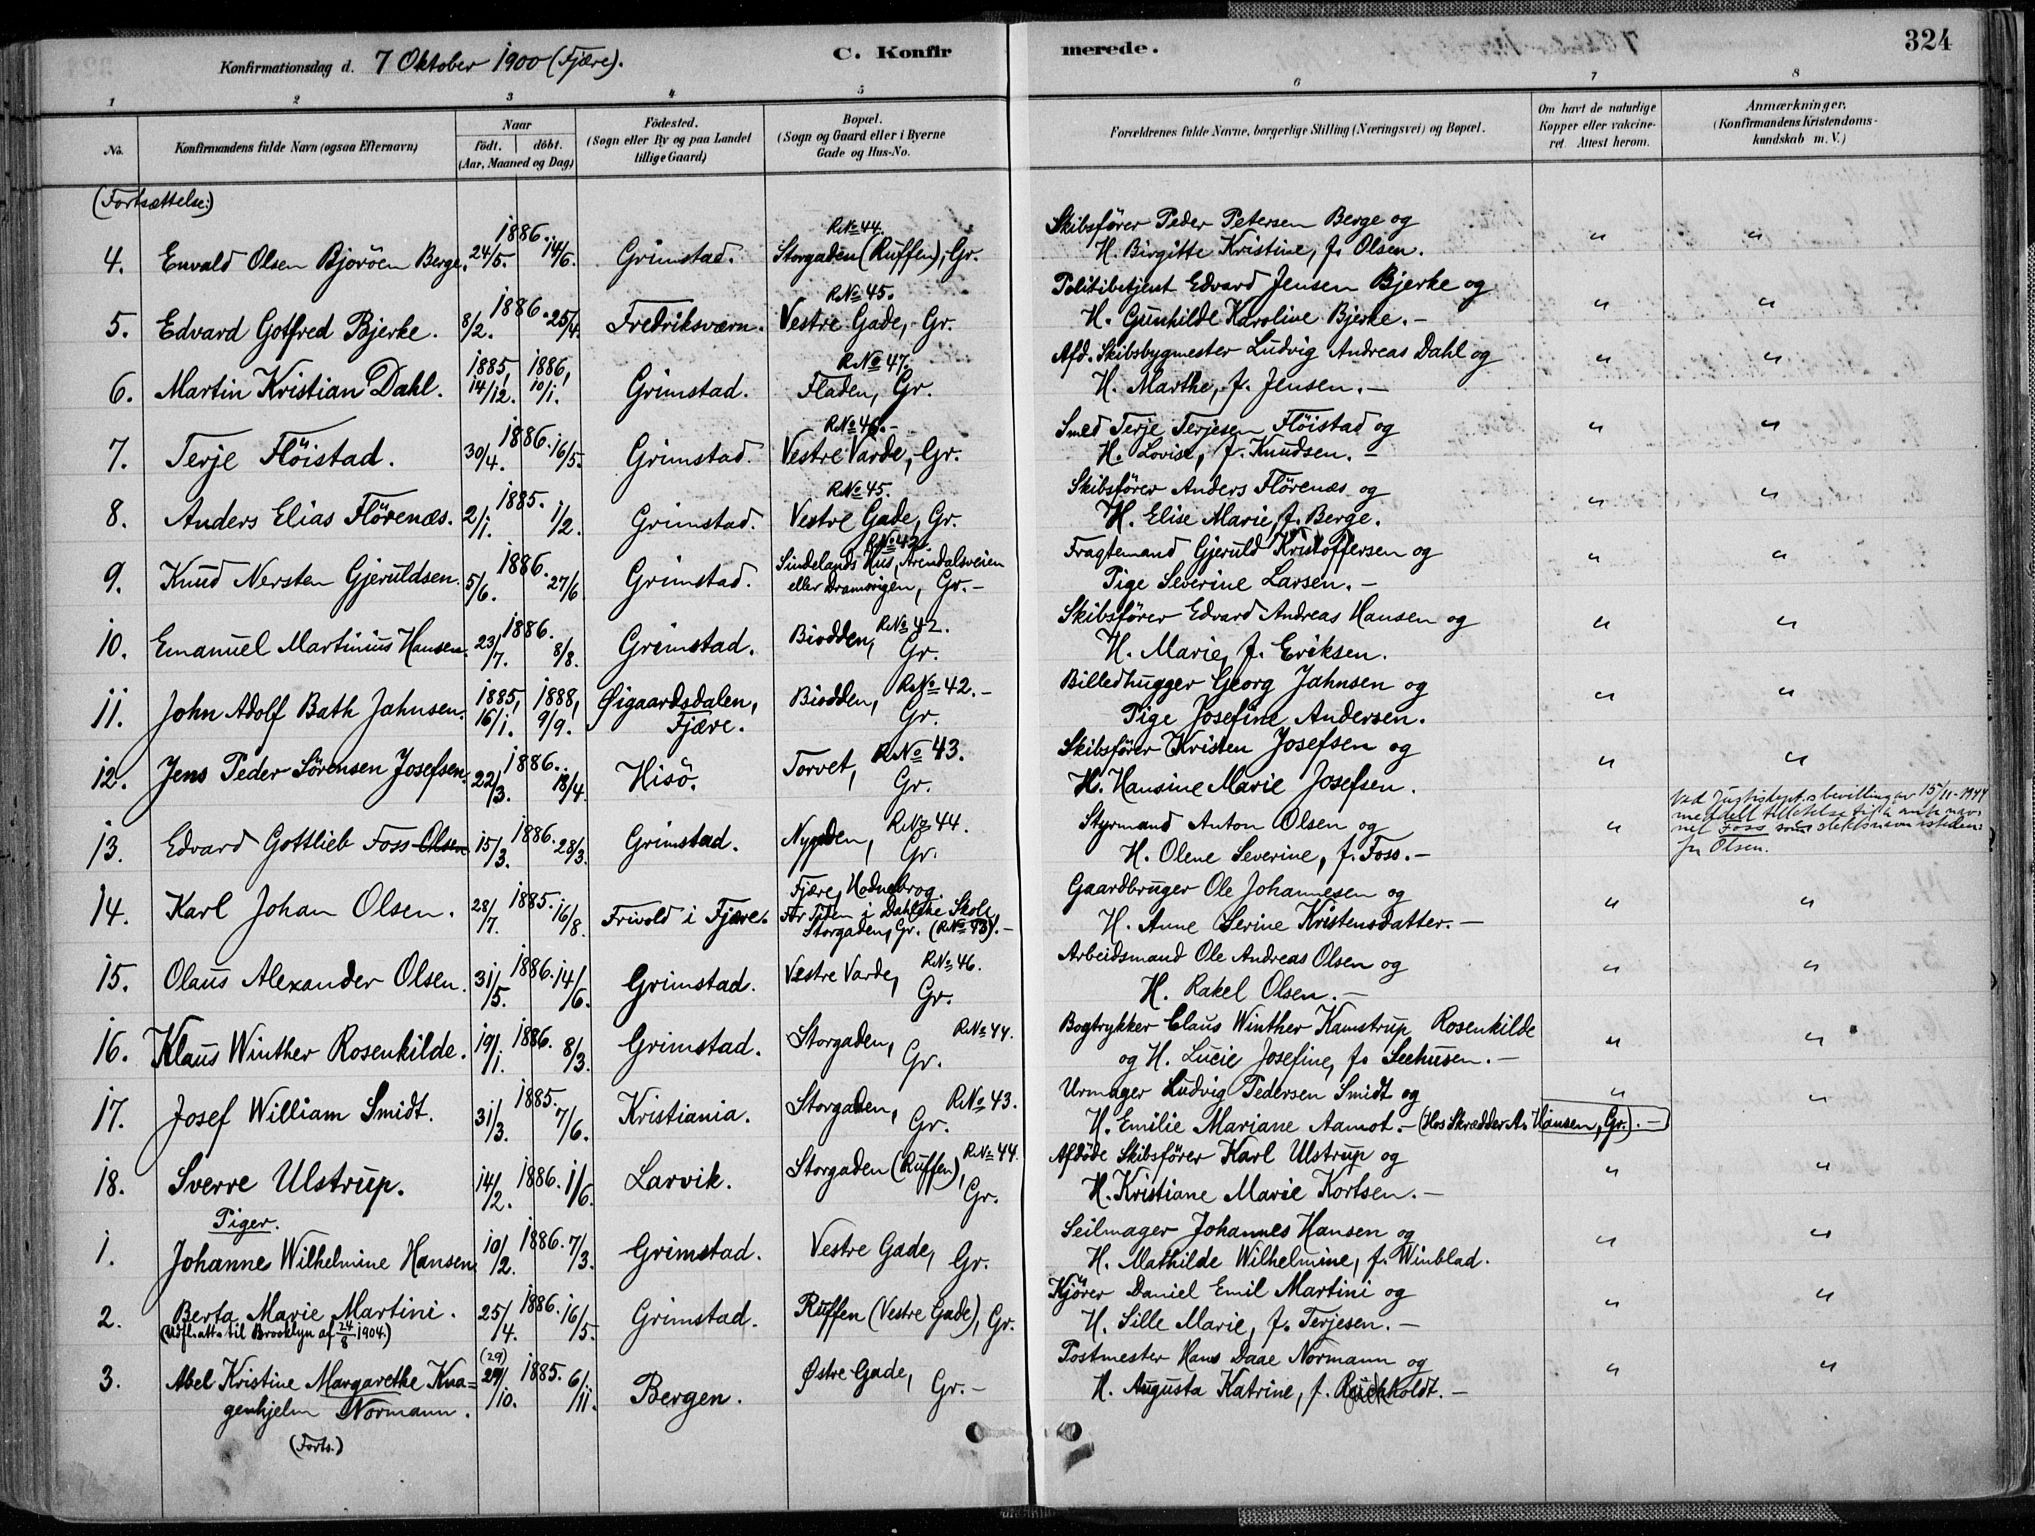 Konfirmationsdag d. 7 Oktober 1900 (Fjære).
C. Konfirmerede.
324
1 2 3 4 5 6 7 8
No.
Konfirmandens fulde Navn (ogsaa Efternavn)
Naar
födt. döbt.
(Aar, Maaned og Dag)
Födested.
(Sogn eller By og paa Landet
tillige Gaard)
Bopæl.
(Sogn og Gaard eller i Byerne
Gade og Hus-No.
Forældrenes fulde Navne, borgerlige Stilling (Næringsvei) og Bopæl.
Om havt de naturlige
Kopper eller vakcine-
ret. Attest herom.
Anmærkninger.
(Konfirmandens Kristendoms-
kundskab m. V.)
(Fortsættelse:)
1886. R.No 44. Skibsfører Peder Petersen Berge og
4. Envald Olsen Bjorøen Berge. 24/5. 14/6. Grimstad. Storgaden (Ruffen), Gr. H. Birgitte Kristine, f. Olsen. " "
1886. R.No 45. Politibetjent Edvard Jensen Bjerke og
5. Edvard Gotfred Bjerke. 8/2. 25/4. Fredriksværn. Vestre Gade, Gr. H. Gunhilde Karoline Bjerke. - " "
1885, 1886, R.No 47. Afd. Skibsbygmester Ludvig Andreas Dahl og
6. Martin Kristian Dahl. 14/12. 10/1. Grimstad. Fladen, Gr. H. Marthe, f. Jensen. - " "
1886. R.No 46. - Smed Terje Terjesen Flöistad og
7. Terje Flöistad. 30/4. 16/5. Grimstad. Vestre Varde, Gr. H. Lovise, f. Knudsen. - " "
1885. R.No 45. Skibsfører Anders Flörenæs og
8. Anders Elias Flörenæs. 2/1. 1/2. Grimstad. Vestre Gade, Gr. H. Elise Marie, f. Berge. " "
1886. R.No 42. Sindelands Hus, Arendalsveien Fragtemand Gjeruld Kristoffersen og
9. Knud Nersten Gjeruldsen. 5/6. 27/6. Grimstad. eller Dramvigen, Gr. - Pige Severine Larsen. - " "
1886. R.No 42. Skibsfører Edvard Andreas Hansen og
10. Emanuel Martinius Hansen. 23/7. 8/8. Grimstad. Biodden, Gr. H. Marie, f. Eriksen. " "
1885, 1888, R.No 42. - Billedhugger Georg Jahnsen og
11. John Adolf Bath Jahnsen. 16/1. 9/9. Øigaardsdalen, Fjære. Biodden, Gr. Pige Josefine Andersen. " "
1886. R.No 43. Skibsfører Kristen Josefsen og
12. Jens Peder Sörensen Josefsen. 22/3. 18/4. Hisö. Torvet, Gr. H. Hansine Marie Josefsen. " "
1886. R.No 44. Styrmand Anton Olsen og Ved Justisdept.s bevilling av 15/11-1944
13. Edvard Gottlieb Foss Olsen 15/3. 28/3. Grimstad. Gr. H. Olene Severine, f. Foss. - " meddelt tillatelse til å anta nav-
net Foss som slektsnavn isteden-
for Olsen.
1885. Fjære, Hodnebrog. Gaardbruger Ole Johannesen og
14. Karl Johan Olsen. 28/7. 16/8. Frivold i Fjære. For Tiden i Dahlske Skole, Storgaden, Gr. (R.No 43). - H. Anne Serine Kristensdatter. - " "
1886. R.No 46. Arbeidsmand Ole Andreas Olsen og
15. Olaus Alexander Olsen. 31/5. 14/6. Grimstad. Vestre Varde, Gr. H. Rakel Olsen. - " "
1886. R.No 44. Bogtrykker Claus Winther Kamstrup Rosenkilde
16. Klaus Winther Rosenkilde. 19/1. 8/3. Grimstad. Storgaden, Gr. og H. Lucie Josefine, f. Seehusen. - " "
1885. R.No 43. Urmager Ludvig Pedersen Smidt og
17. Josef William Smidt. 31/3. 7/6. Kristiania. Storgaden, Gr. H. Emilie Mariane Aamot. - (Hos Skrædder A. Hansen, Gr.). - " "
1886. R.No 44. Afdöde Skibsfører Karl Ulstrup og
18. Sverre Ulstrup. 14/2. 1/6. Larvik. Storgaden (Ruffen), Gr. H. Kristiane Marie Kortsen. - " "
Piger.
1886. Seilmager Johannes Hansen og
1. Johanne Wilhelmine Hansen 10/2. 7/3. Grimstad. Vestre Gade, Gr. H. Mathilde Wilhelmine, f. Winblad. " "
1886. Kjörer Daniel Emil Martini og
2. Berta Marie Martini. 25/4. 16/5. Grimstad. Ruffen (Vestre Gade), Gr. H. Sille Marie, f. Terjesen. - " "
(Udfl.att. til Brooklyn af 24/8 1904.)
(29) 1885. Postmester Hans Daae Normann og
3. Abel Kristine Margarethe Kna= 29/10. 6/11. Bergen. Østre Gade, Gr. - H. Augusta Katrine, f. Reichholdt. - " "
genhjelm Normann.
(Forts.)